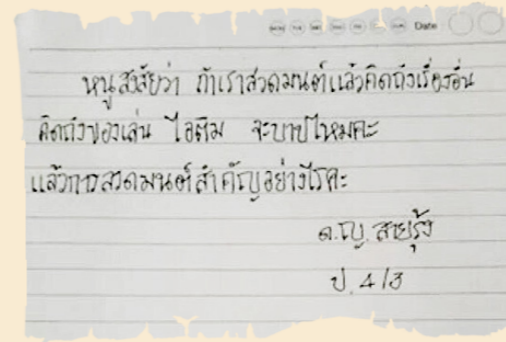 MON TUE WED THU FRI SAT SUN Date
หนูสงสัยว่า ถ้าเราสวดมนต์แล้วคิดถึงเรื่องอื่น
คิดถึงของเล่น ไอติม จะบาปไหมคะ
แล้วการสวดมนต์สำคัญอย่างไรคะ
ด.ญ. สายรุ้ง
ป. 4/3